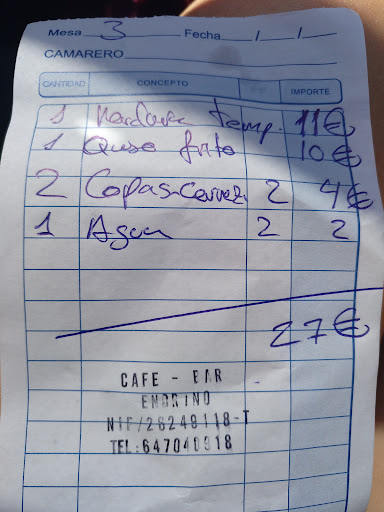 Mesa 3 Fecha / /
CAMARERO
CANTIDAD CONCEPTO IMPORTE
1 Verdura temp. 11€
1 Queso frito 10€
2 Copas-Cervez. 2 4€
1 Agua 2 2
27€
CAFE - BAR
ENDRINO
NIF/26248118-T
TEL:647040918